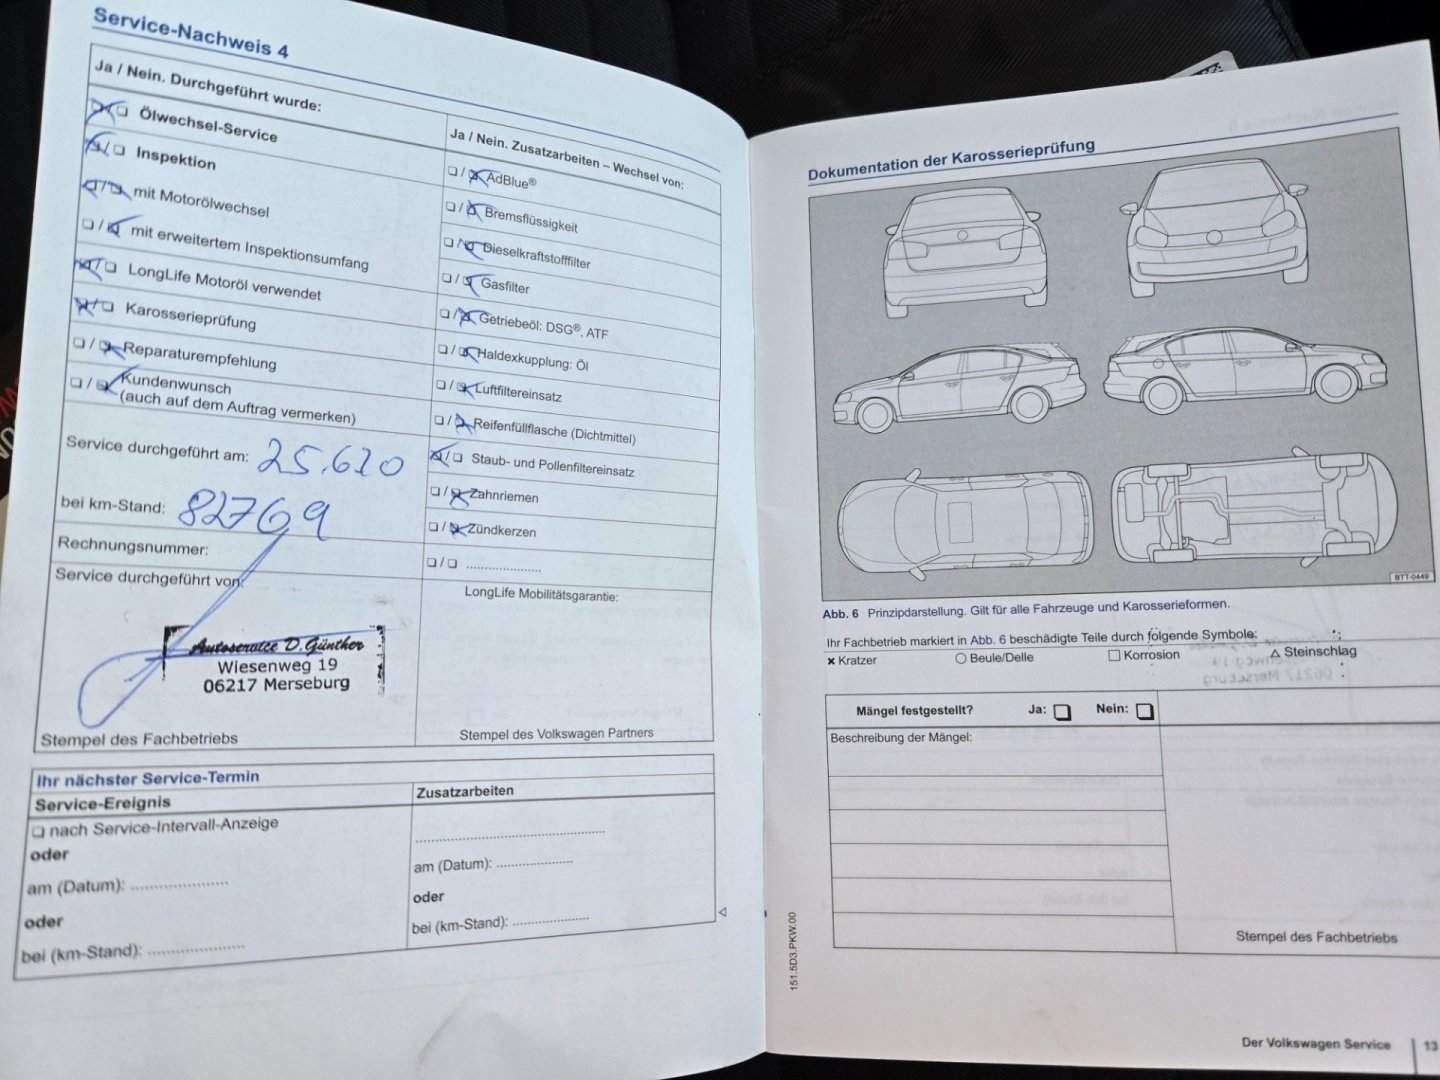 Service-Nachweis 4
Ja / Nein. Durchgeführt wurde:
❏/❏ Ölwechsel-Service
❏/❏ Inspektion
❏/❏ mit Motorölwechsel
❏/❏ mit erweitertem Inspektionsumfang
❏/❏ LongLife Motoröl verwendet
❏/❏ Karosserieprüfung
❏/❏ Reparaturempfehlung
❏/❏ Kundenwunsch
(auch auf dem Auftrag vermerken)
Service durchgeführt am: 25.620
bei km-Stand: 82769
Rechnungsnummer:
Service durchgeführt von:
Autoservice D. Günther
Wiesenweg 19
06217 Merseburg
Stempel des Fachbetriebs
Ja / Nein. Zusatzarbeiten – Wechsel von:
❏/❏ AdBlue®
❏/❏ Bremsflüssigkeit
❏/❏ Dieselkraftstofffilter
❏/❏ Gasfilter
❏/❏ Getriebeöl: DSG®, ATF
❏/❏ Haldexkupplung: Öl
❏/❏ Luftfiltereinsatz
❏/❏ Reifenfüllflasche (Dichtmittel)
❏/❏ Staub- und Pollenfiltereinsatz
❏/❏ Zahnriemen
❏/❏ Zündkerzen
❏/❏ .....................
LongLife Mobilitätsgarantie:
Stempel des Volkswagen Partners
Ihr nächster Service-Termin
Service-Ereignis
❏ nach Service-Intervall-Anzeige
oder
am (Datum): .....................
oder
bei (km-Stand): .....................
Zusatzarbeiten
........................................
am (Datum): ................
oder
bei (km-Stand): ................
Dokumentation der Karosserieprüfung
BTT-0449
Abb. 6 Prinzipdarstellung. Gilt für alle Fahrzeuge und Karosserieformen.
Ihr Fachbetrieb markiert in Abb. 6 beschädigte Teile durch folgende Symbole:
× Kratzer ○ Beule/Delle □ Korrosion △ Steinschlag
Mängel festgestellt? Ja: ❏ Nein: ❏
Beschreibung der Mängel:
Stempel des Fachbetriebs
151.5D3.PKW.00
Der Volkswagen Service 13